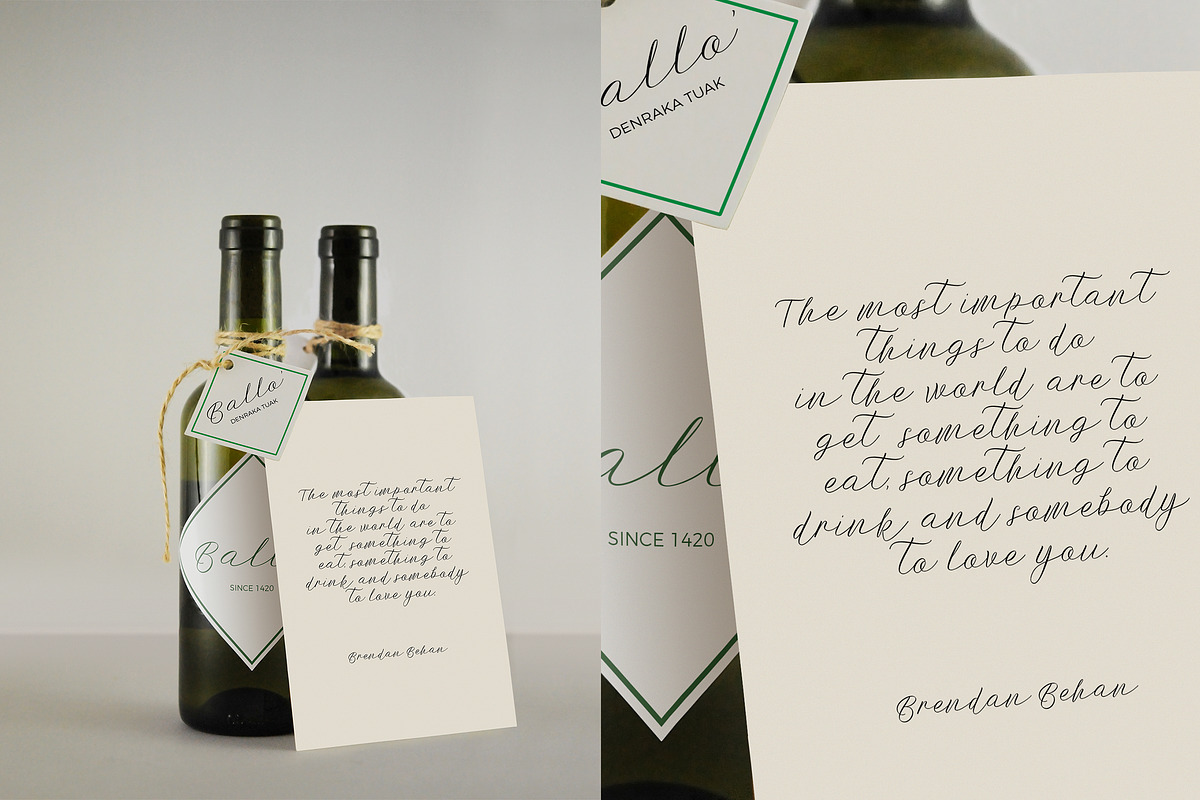 Ballo'
DENRAKA TUAK
Ball
SINCE 1420
The most important
things to do
in the world are to
get something to
eat, something to
drink and somebody
to love you.
Brendan Behan
allo'
DENRAKA TUAK
all
SINCE 1420
The most important
things to do
in the world are to
get something to
eat, something to
drink and somebody
to love you.
Brendan Behan